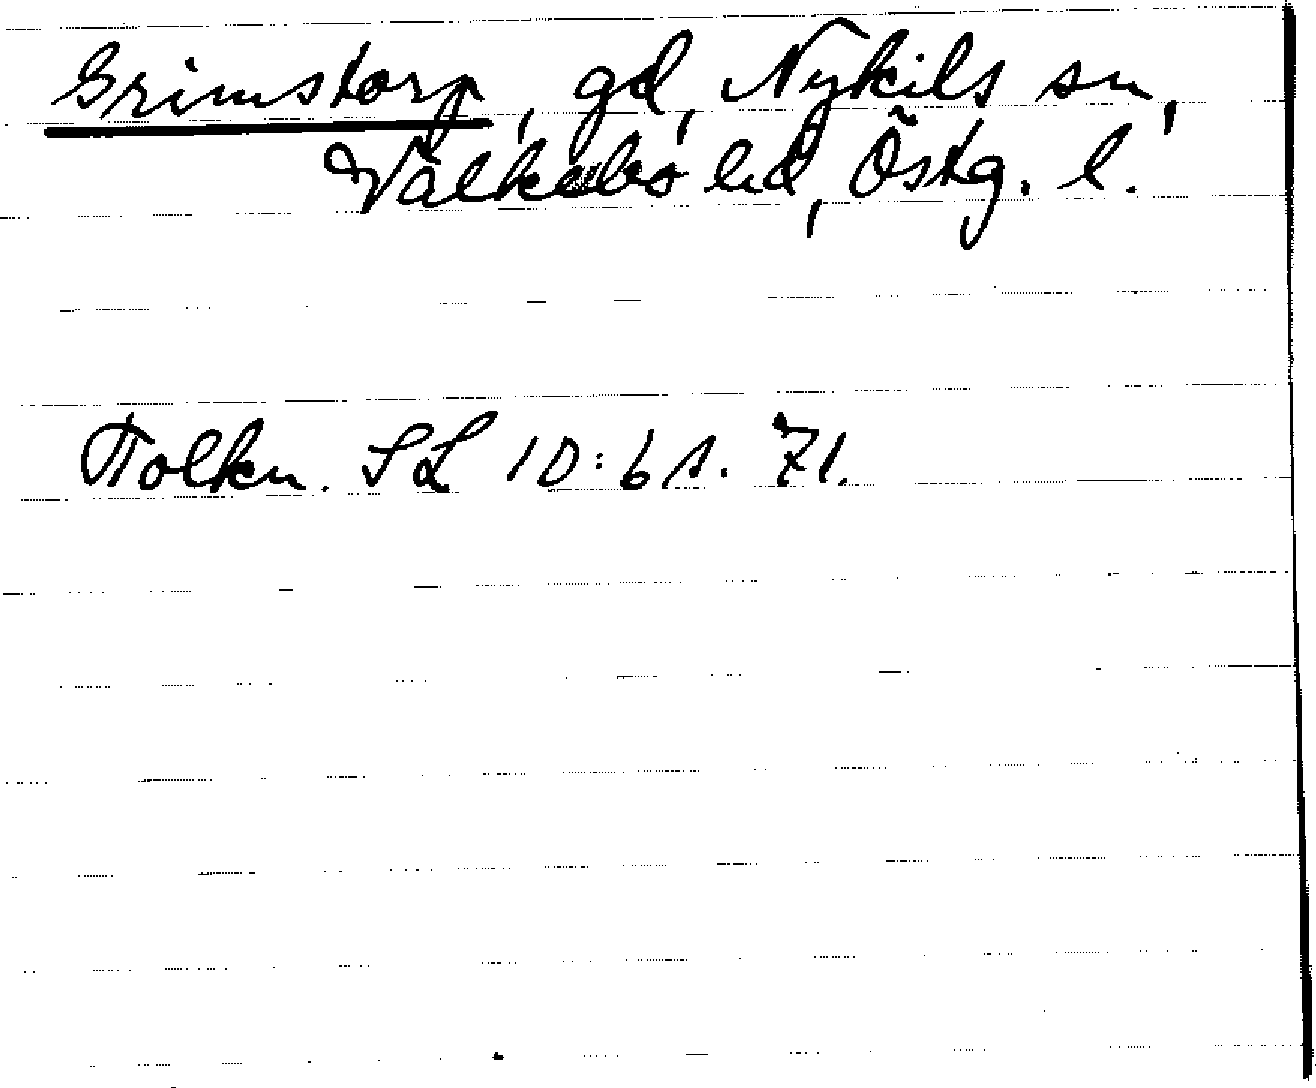 Grimstorp, gd, Nykils sn,
Valkebo hd, Östg. l.
Tolkn. SL 10:6 s. 71.